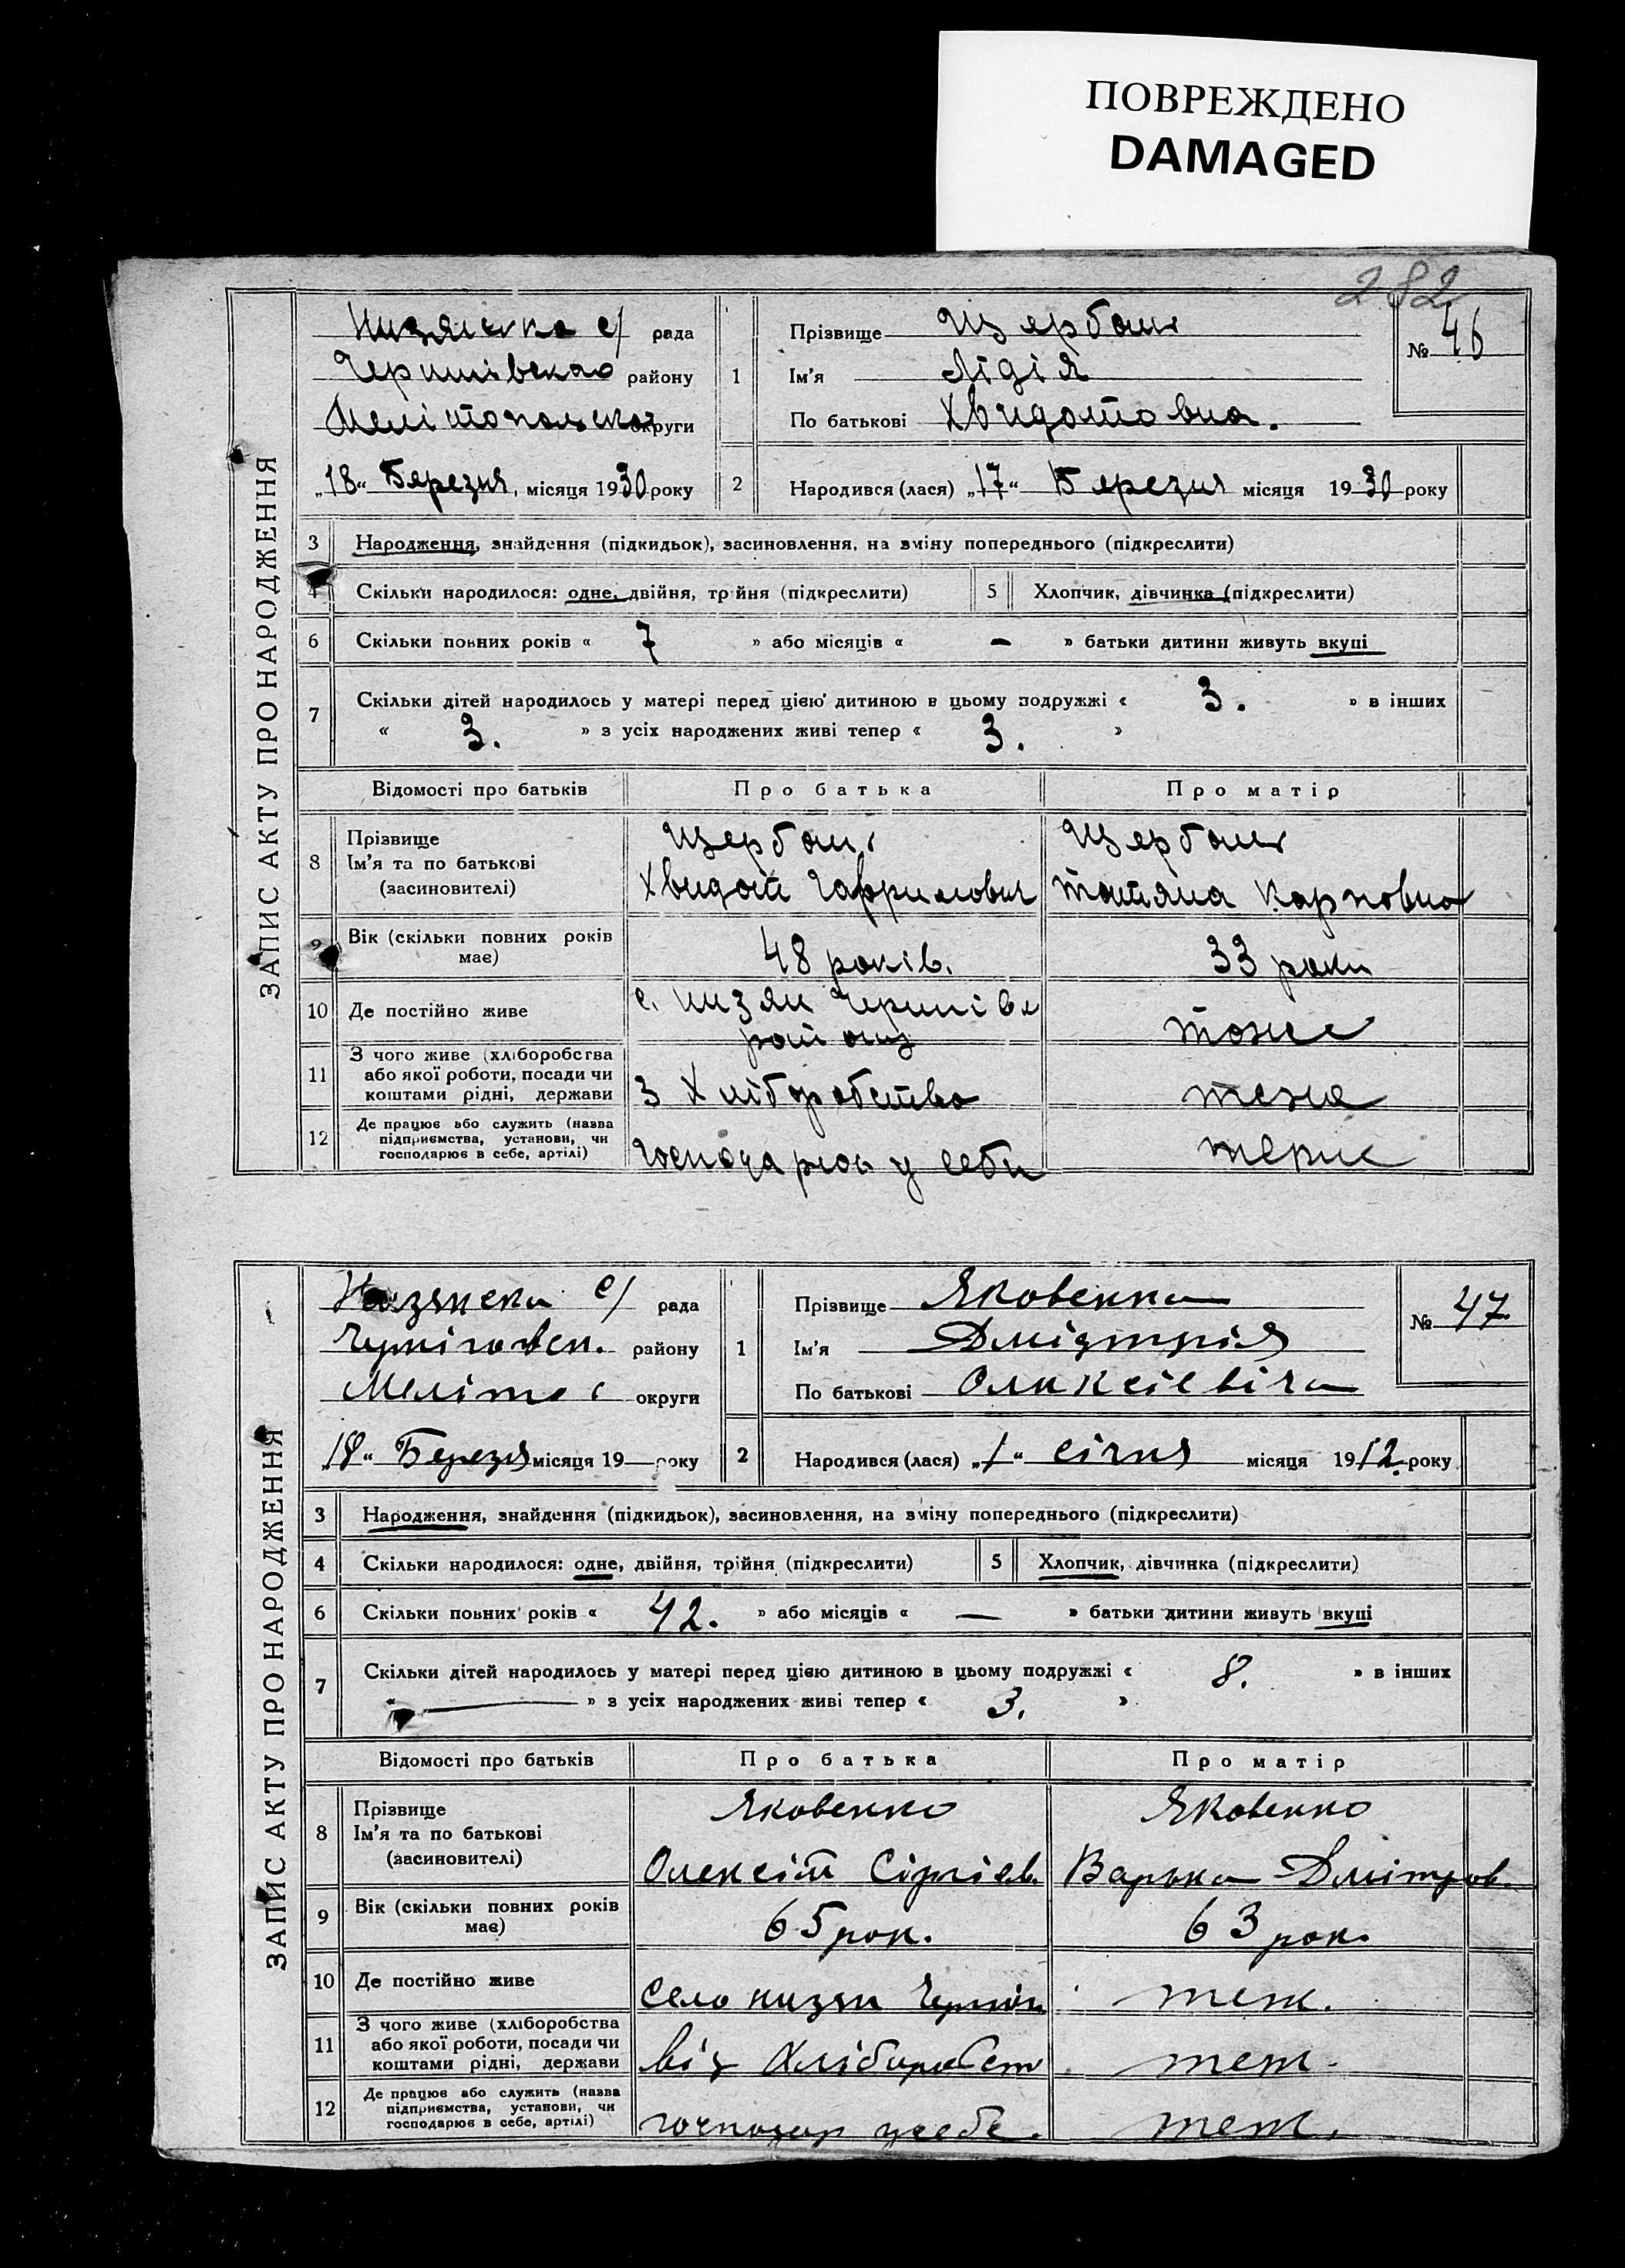 ПОВРЕЖДЕНО
DAMAGED
282
ЗАПИС АКТУ ПРО НАРОДЖЕННЯ
с/ рада
району
округи
„18“ Березня, місяця 1930 року
№ 46
1 Прізвище Щербань
Ім'я Лідія
По батькові Хвидотовна.
2 Народився (лася) „17“ Березня місяця 1930 року
3 Народження, знайдення (підкидьок), засиновлення, на зміну попереднього (підкреслити)
4 Скільки народилося: одне, двійня, трійня (підкреслити) 5 Хлопчик, дівчинка (підкреслити)
6 Скільки повних років « 7 » або місяців « – » батьки дитини живуть вкупі
7 Скільки дітей народилось у матері перед цією дитиною в цьому подружжі « 3. » в інших
« 3. » з усіх народжених живі тепер « 3. »
Відомості про батьків Про батька Про матір
8 Прізвище Щербань Щербань
Ім'я та по батькові
(засиновителі) Хвидот Гаврилович Татяна Карповна
9 Вік (скільки повних років має) 48 років. 33 роки
10 Де постійно живе с. Низян району тоже
11 З чого живе (хліборобства
або якої роботи, посади чи
коштами рідні, держави З Хліборобства теже
12 Де працює або служить (назва
підприємства, установи, чи
господарює в себе, артілі) у себи
ЗАПИС АКТУ ПРО НАРОДЖЕННЯ
с/ рада
району
округи
„18“ Березня місяця 19— року
№ 47.
1 Прізвище Яковенка
Ім'я Дмідтрія
По батькові Оликсієвіча
2 Народився (лася) „1“ січня місяця 1912. року
3 Народження, знайдення (підкидьок), засиновлення, на зміну попереднього (підкреслити)
4 Скільки народилося: одне, двійня, трійня (підкреслити) 5 Хлопчик, дівчинка (підкреслити)
6 Скільки повних років « 42. » або місяців « — » батьки дитини живуть вкупі
7 Скільки дітей народилось у матері перед цією дитиною в цьому подружжі « 8. » в інших
« — » з усіх народжених живі тепер « 3. »
Відомості про батьків Про батька Про матір
8 Прізвище Яковенко Яковенко
Ім'я та по батькові
(засиновителі) Олексій Сіргієв. Варька Дмітров.
9 Вік (скільки повних років має) 65 рок. 63 рок.
10 Де постійно живе Село низян теж.
11 З чого живе (хліборобства
або якої роботи, посади чи
коштами рідні, держави від теж.
12 Де працює або служить (назва
підприємства, установи, чи
господарює в себе, артілі) господар усебе. теж.